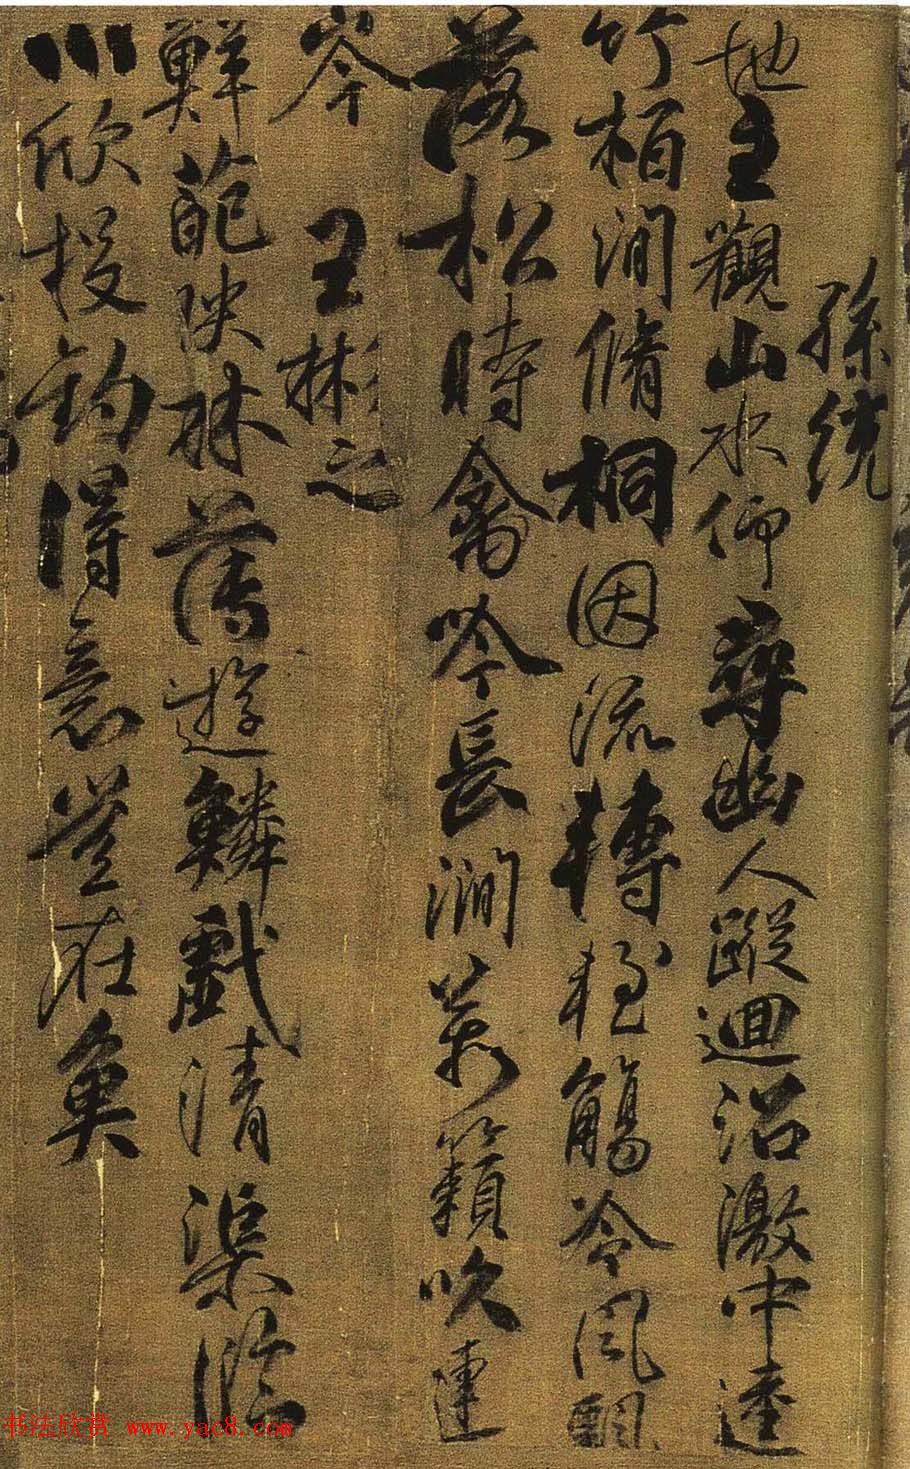 孫統
地主觀山水仰尋幽人蹤迴沼激中逵
竹栢澗脩桐因流轉輕觴冷風飄
落松時禽吟長澗萬籟吹連
岑 王彬之
鮮葩映林薄遊鱗戲清渠臨
川欣投釣得意豈在魚
书法欣赏 www.yac8.com